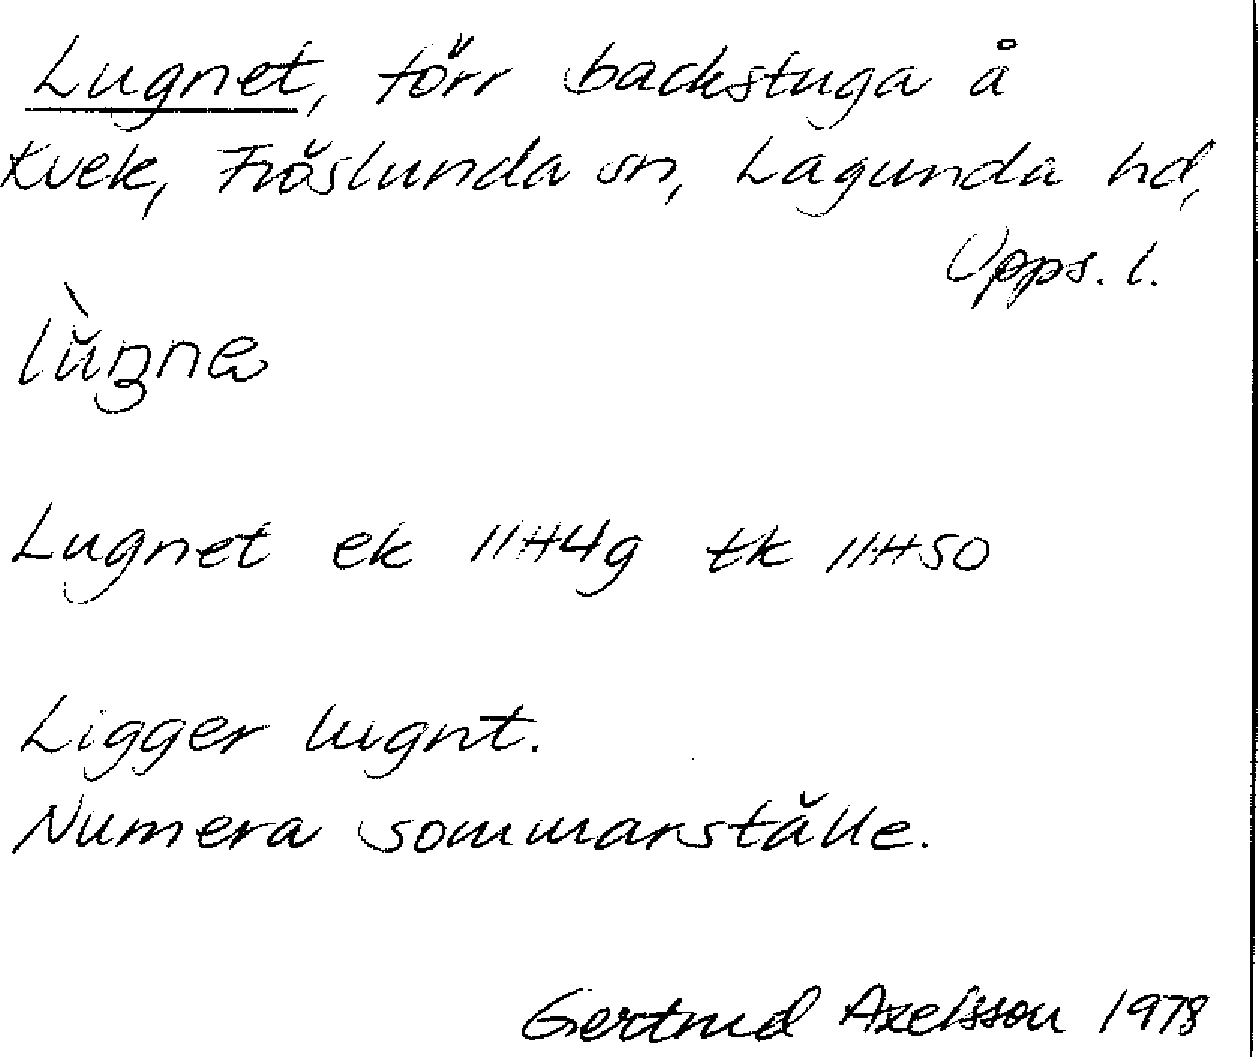 Lugnet, förr backstuga å
Kvek, Fröslunda sn, Lagunda hd,
Upps. l.
Lugnet ek 11H4g tk 11H50
Ligger lugnt.
Numera sommarställe.
Gertrud Axelsson 1978